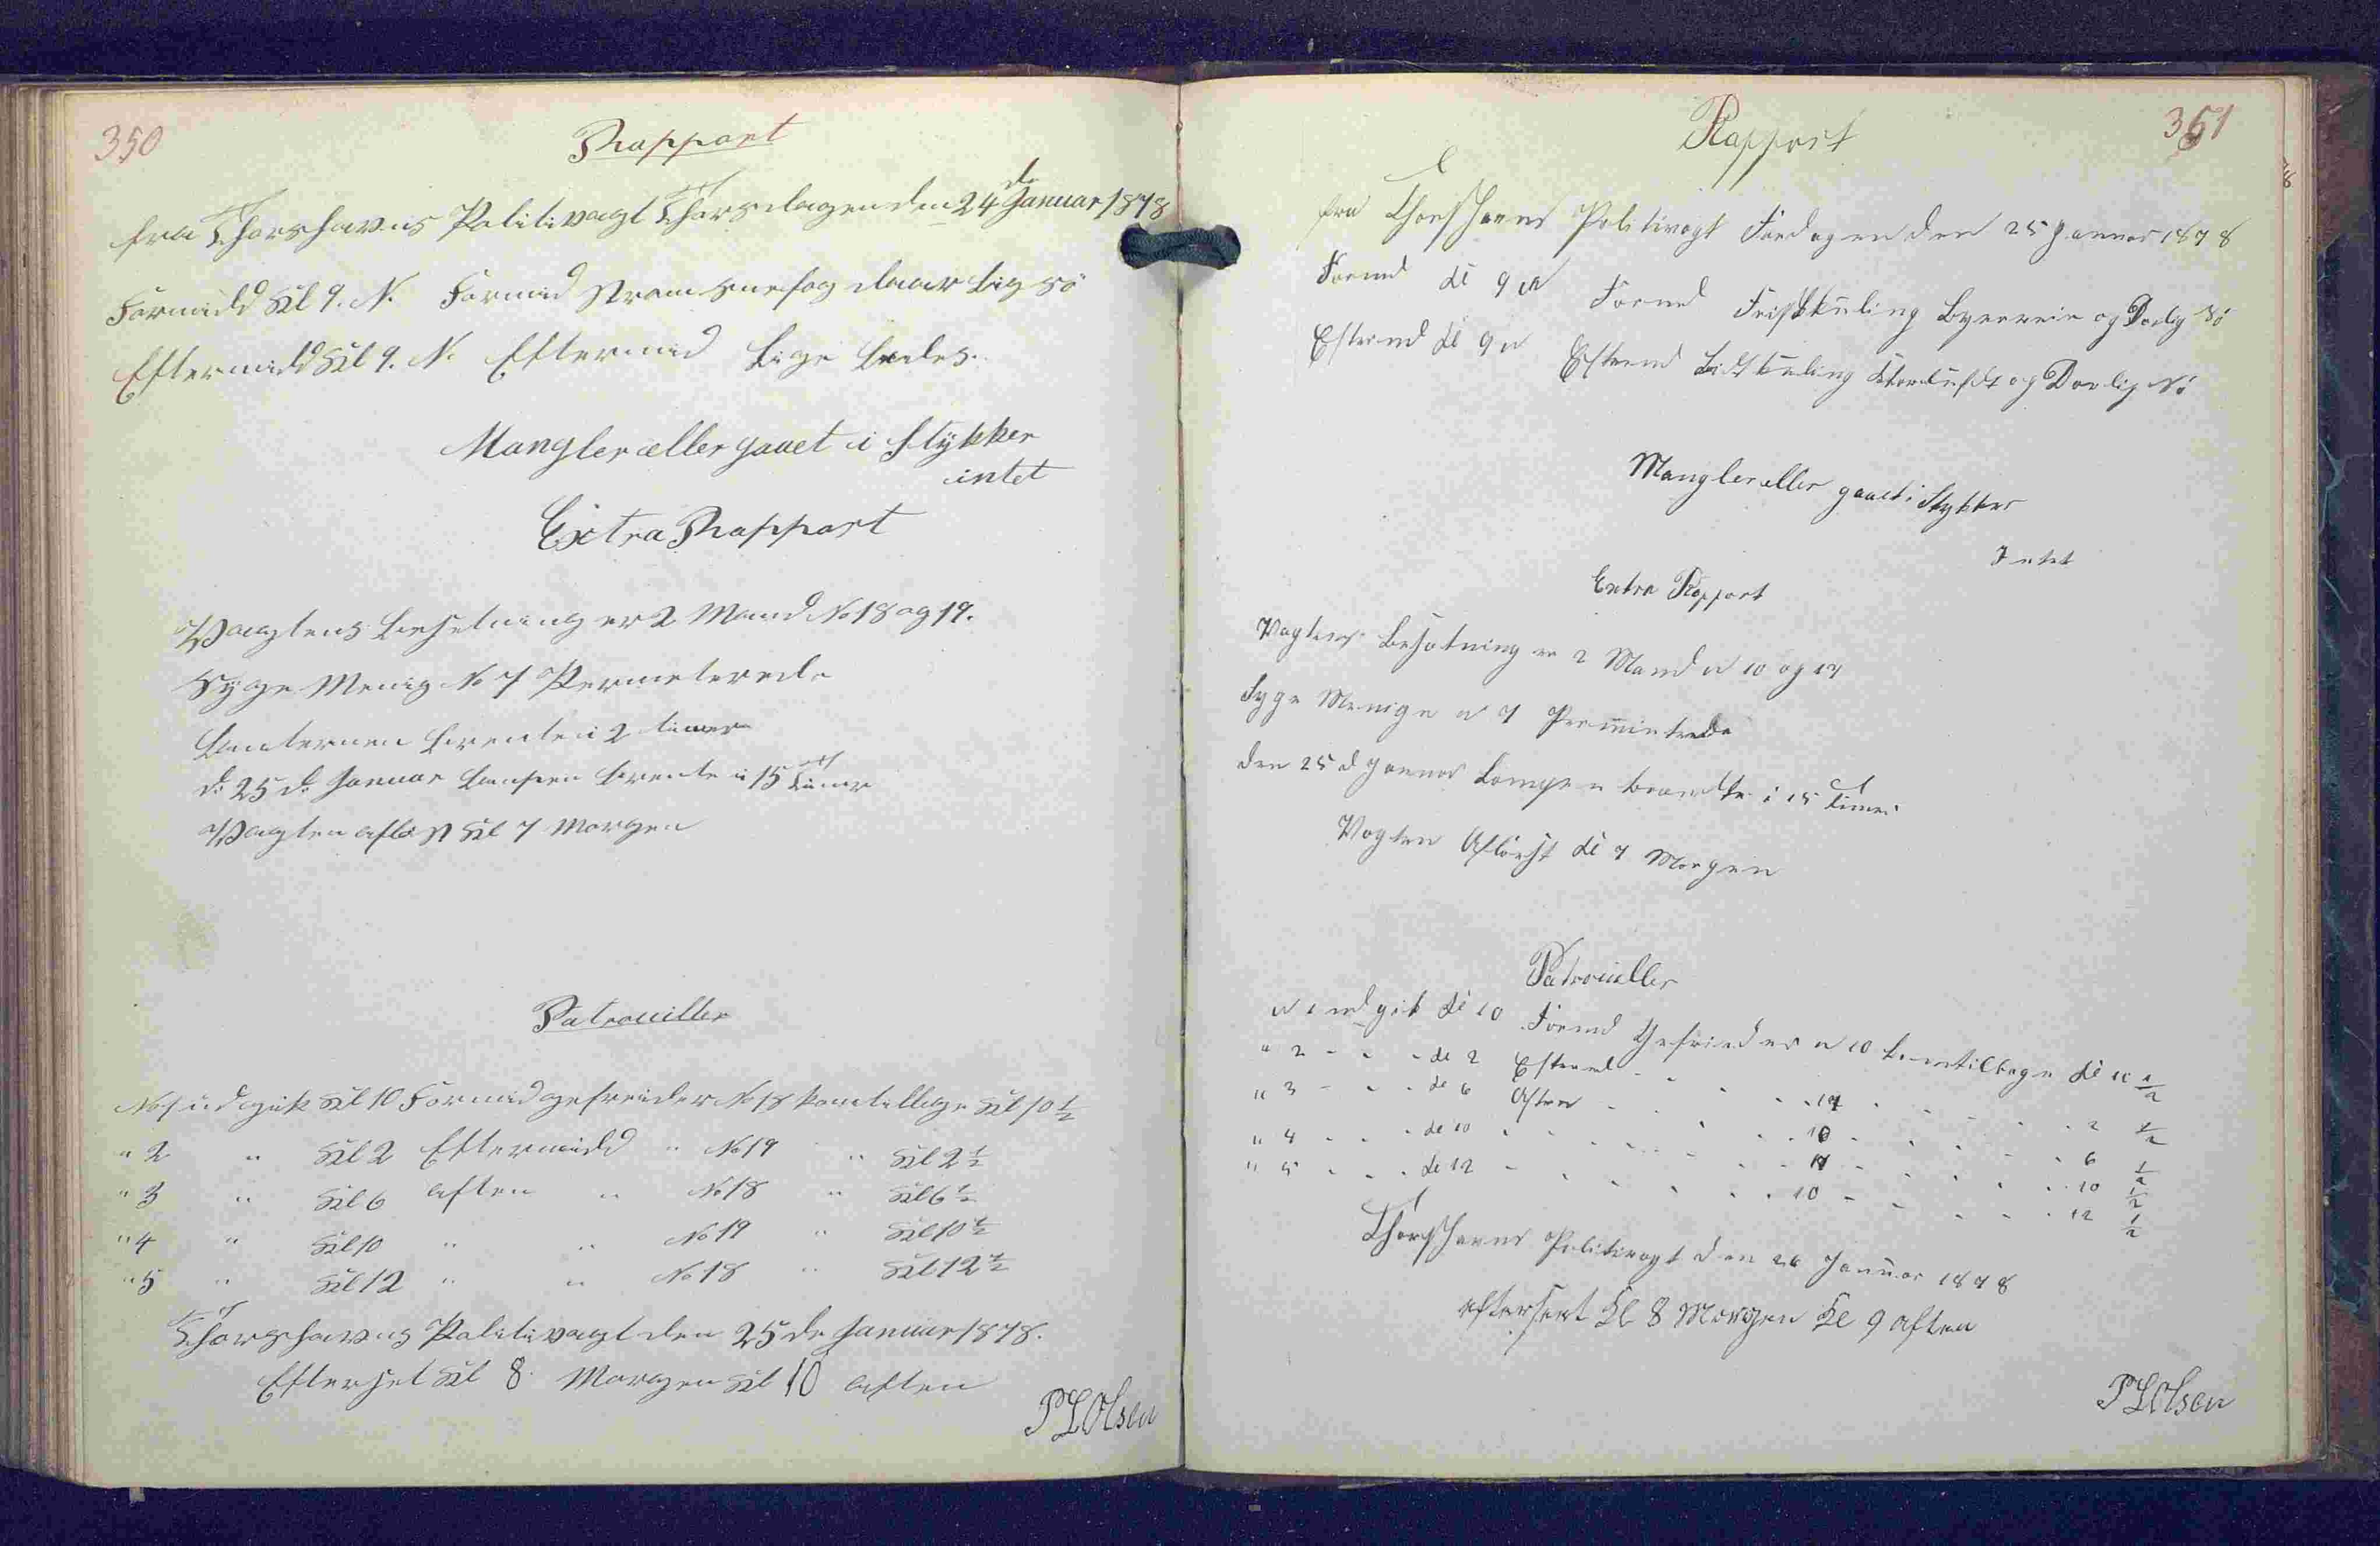 350
Rapport
fra Thorshavns Politivagt Thorsdagen den 24de Januar 1878
Formidd Kl 9. N. Formid Storm Snefog daarlig Sö
Eftermidd Kl 9. N. Eftermid lige ledes.
Mangler eller gaaet i Stykker
intet
Extra Rapport
Vagtens besetning er 2 Mand No 18 og 19.
Syge Menig No 7 Permeterede
Lanternen brente i 2 timer
d: 25 de Januar Lampen brente i 15 Timer
Vagten aflöst Kl 7 Morgen
Patrouiller
No 1 udgik Kl 10 Formid gefreider No 18 kom tilbage Kl 10 1/2
" 2 " Kl 2 Eftermidd " No 19 " Kl 2 1/2
" 3 " Kl 6 aften " No 18 " Kl 6 1/2
" 4 " Kl 10 " " No 19 " Kl 10 1/2
" 5 " Kl 12 " " No 18 " Kl 12 1/2
Thorshavns Politivagt den 25 de Januar 1878.
Efterset Kl 8 Morgen Kl 10 aften
P L Olsen
351
Rapport
fra Thorshavns Politivagt Fredagen den 25 Januar 1878
Formd Kl 9 N Formd Frisk kuling og Daarlig Sö
Eftermd Kl 9 N Eftermd kuling og Daarlig Sö
Mangler eller gaaet i Stykker
Intet
Extra Rapport
Vagtens Besætning er 2 Mand N 10 og 17
Syge Menige N 7 Permintrede
den 25 d Januar Lampen brændte i 15 Timer
Vagten Aflöst Kl 7 Morgen
Patrouiller
N 1 udgik Kl 10 Formd Gefreider N 10 kom tilbage Kl 10 1/2
" 2 - - - Kl 2 Eftermd - - - 17 - - - 2 1/2
" 3 - - - Kl 6 Aften - - - 10 - - - 6 1/2
" 4 - - - Kl 10 - - - 17 - - - 10 1/2
" 5 - - - Kl 12 - - - 10 - - - 12 1/2
Thorshavns Politivagt den 26 Januar 1878
efterseet Kl 8 Morgen Kl 9 aften
P L Olsen